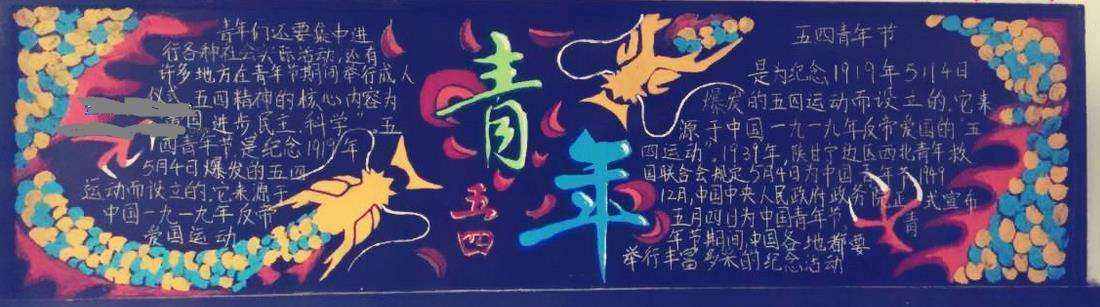 青年们还要集中进
行各种社会实际活动,还有
许多地方在青年节期间举行成人
仪式.五四精神的核心内容为
国进步民主.科学”.五
四青年节是纪念1919年
5月4日爆发的五四
运动而设立的.它来源于
中国一九一九年反帝
爱国运动
青
年
五
四
五四青年节
是为纪念1919年5月4日
爆发的五四运动而设立的.它来
源于中国一九一九年反帝爱国的“五
四运动”.1939年,陕甘宁边区西北青年救
国联合会规定5月4日为中国青年节1949
12月,中国中央人民政府政务院正式宣布
五月四日为中国青年节 青
年节期间,中国各地都要
举行丰富多采的纪念活动